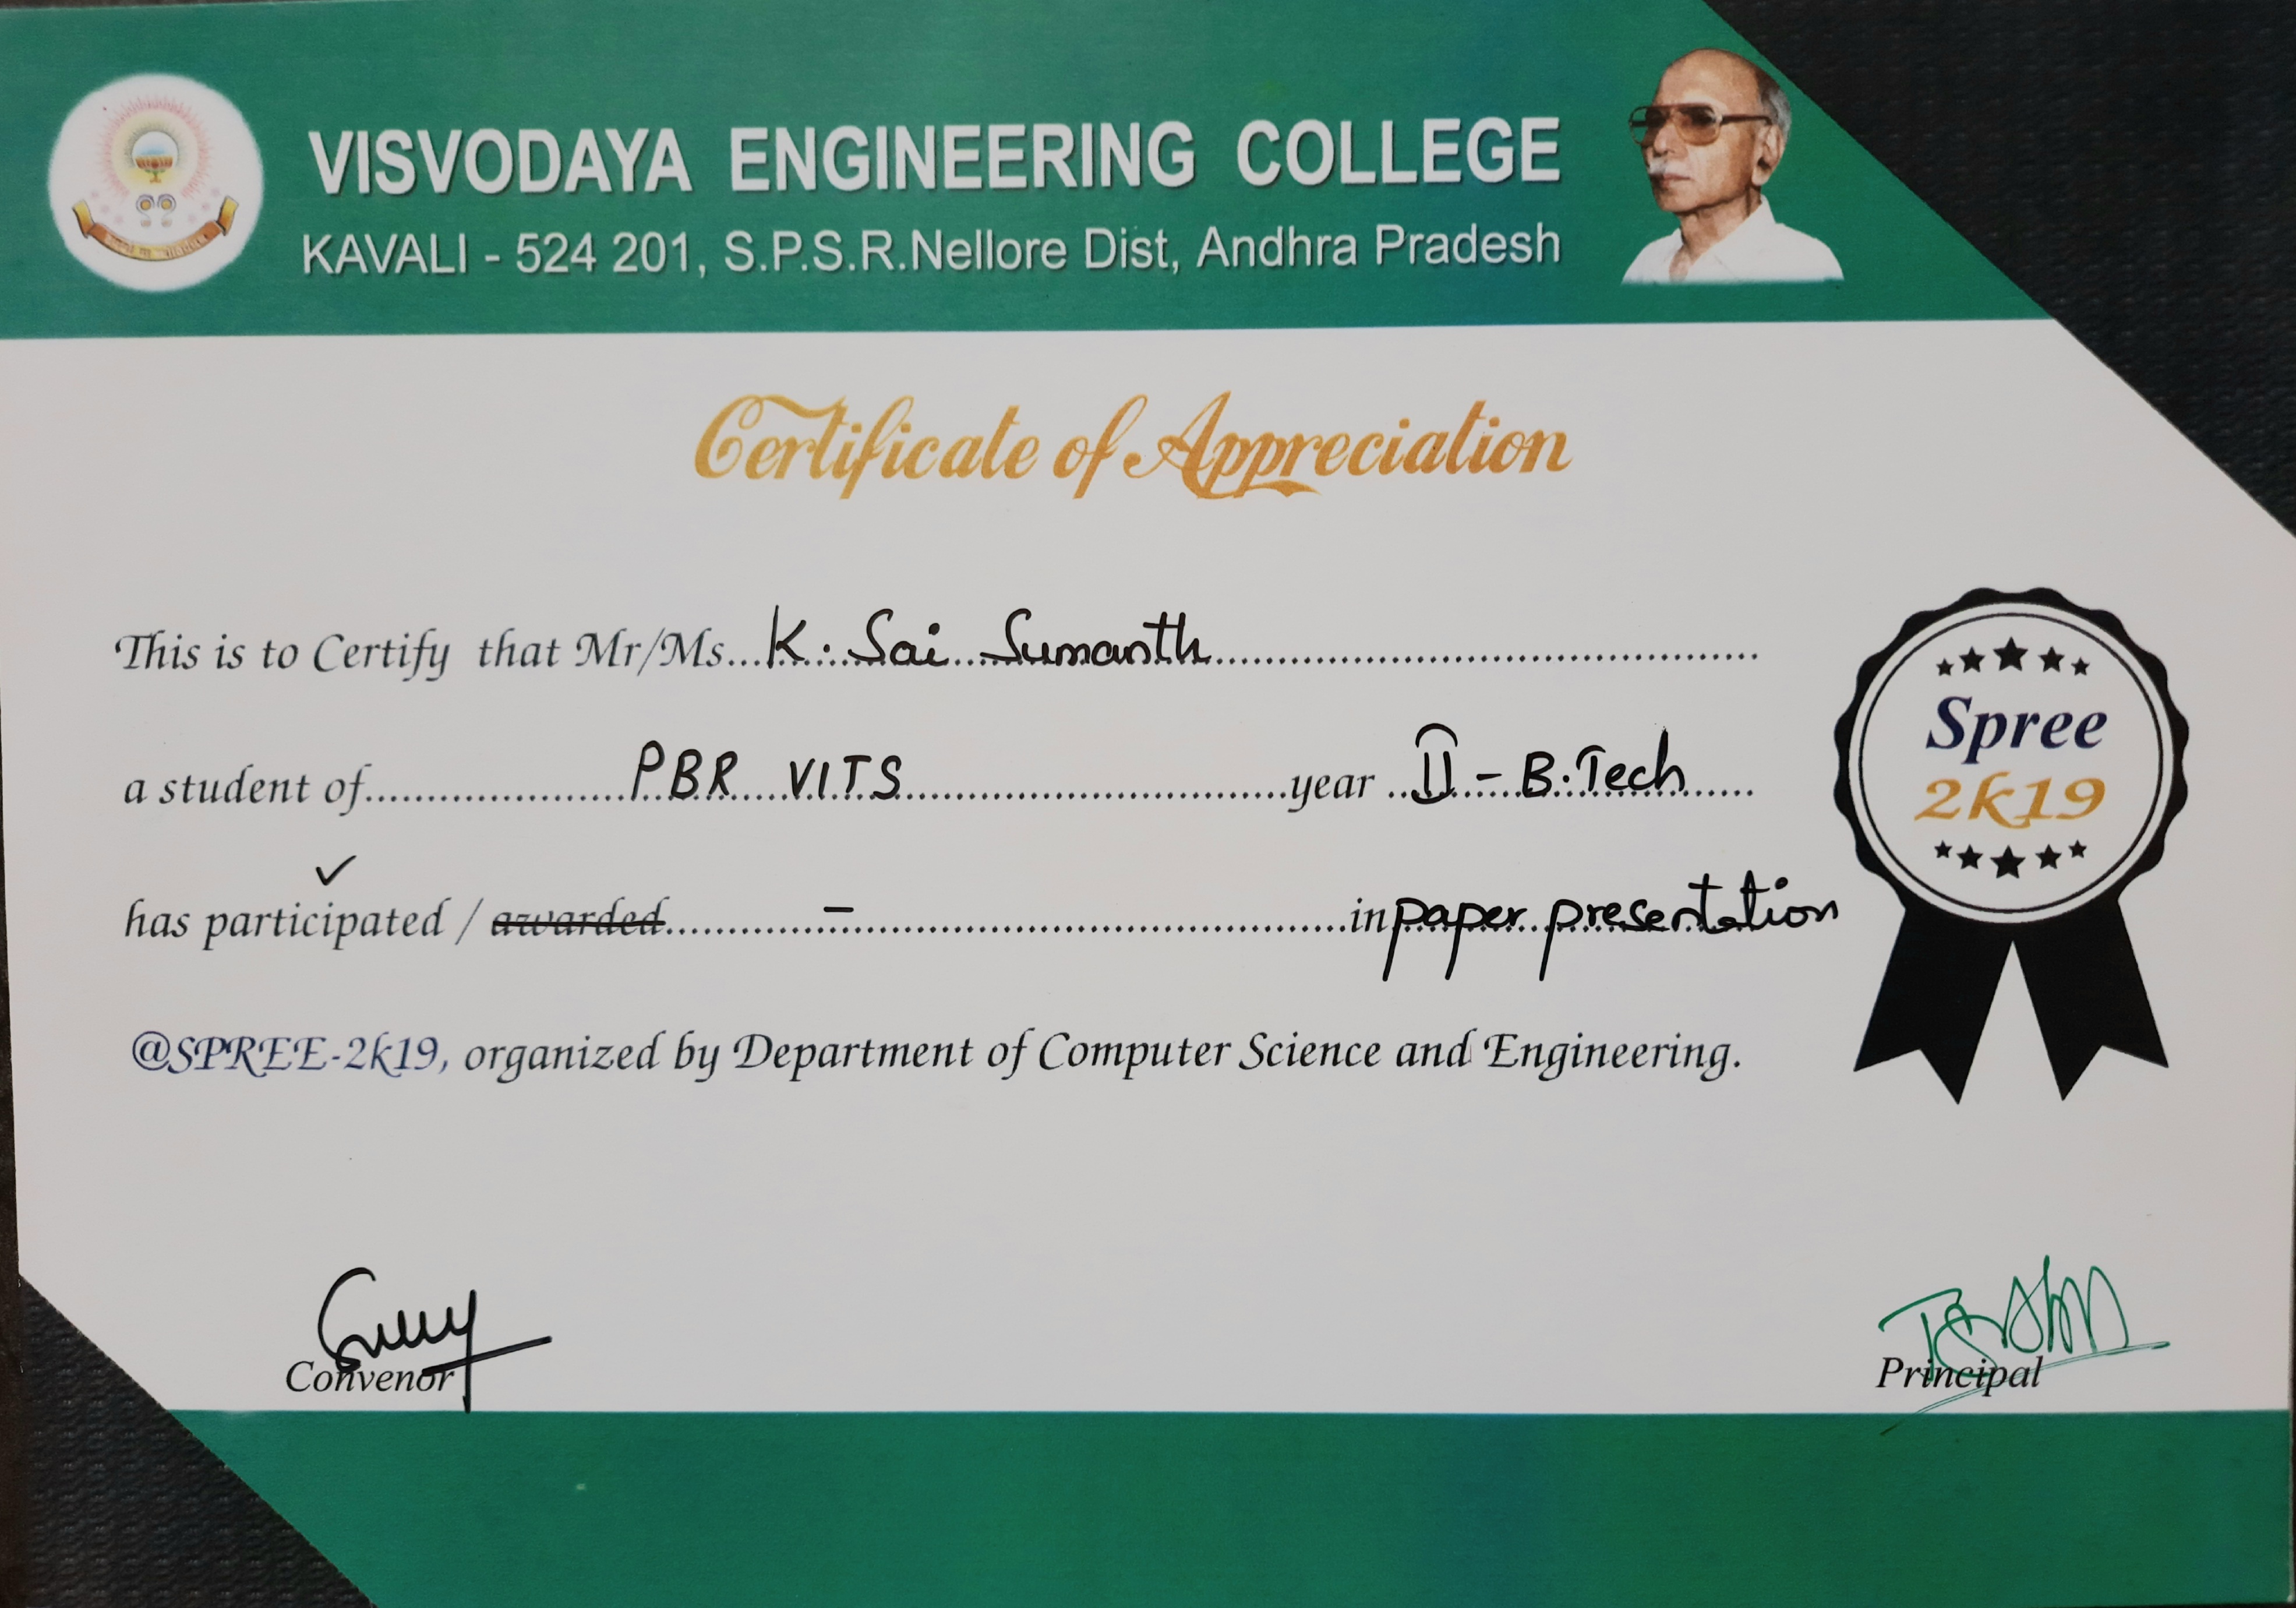 VISVODAYA ENGINEERING COLLEGE
KAVALI - 524 201, S.P.S.R.Nellore Dist, Andhra Pradesh
Certificate of Appreciation
This is to Certify that Mr/Ms...K. Sai Sumanth...
a student of...PBR VITS...year...II - B.Tech...
has participated / awarded... - ...in paper presentation
@SPREE-2k19, organized by Department of Computer Science and Engineering.
Spree
2k19
Convenor
Principal